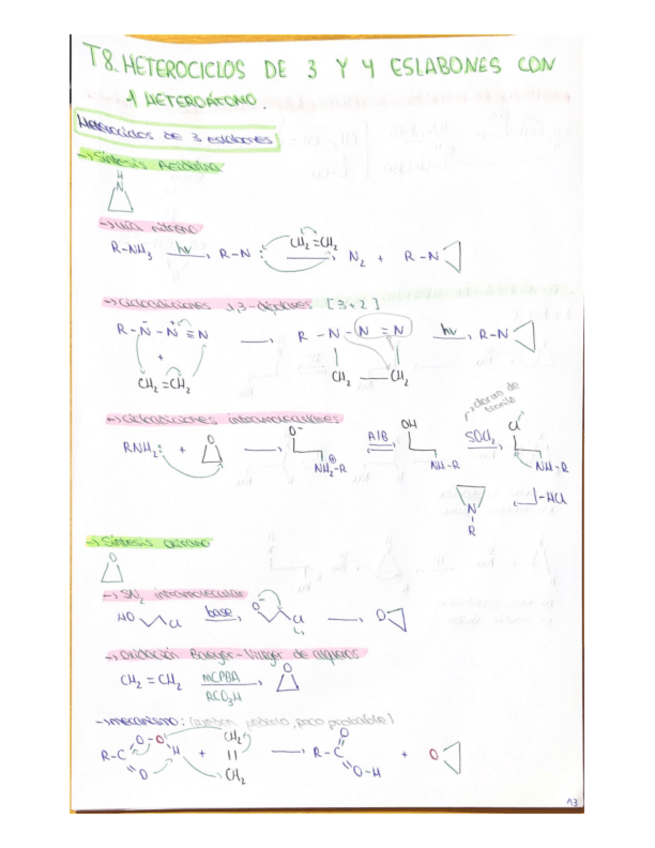 T8. HETEROCICLOS DE 3 Y 4 ESLABONES CON
1 HETEROÁTOMO.
Heterociclos de 3 eslabones
→ Síntesis Aciridina
H
N
→ Vía nitreno
R-NH3 hν R-N: CH2=CH2 N2 + R-N
→ cicloadiciones 1,3-dipolares [3+2]
R-N̄-N⁺≡N → R-N-N=N hν R-N
+
CH2=CH2 CH2-CH2
→ cicloadiciones intramoleculares
RNH2: + O → O⁻ NH2⊕-R A/B OH NH-R SOCl2 Cl NH-R
N -HCl
R
→ Síntesis oxirano
O
→ SN2 intramolecular
HO Cl base, O⁻ Cl → O
→ oxidación Baeyer-Villiger de alquenos
CH2=CH2 MCPBA O
RCO3H
→ mecanismo: (
CH2 O
R-C O-O H + || → R-C + O
O CH2 O-H
13